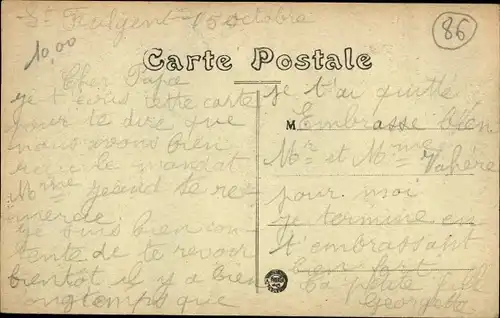 St Fulgent 15 octobre
10,00
86
Carte Postale
Cher Papa
je t'écris cette carte
pour te dire que
nous avons bien
reçu le mandat
Mme te re-
mercie
je suis bien con-
tente de te revoir
bientôt il y a bien
longtemps que
je t'ai quitté
M Embrasse bien
Mr et Mme
pour moi
je termine en
t'embrassant
bien fort
Ta petite fille
Georgette